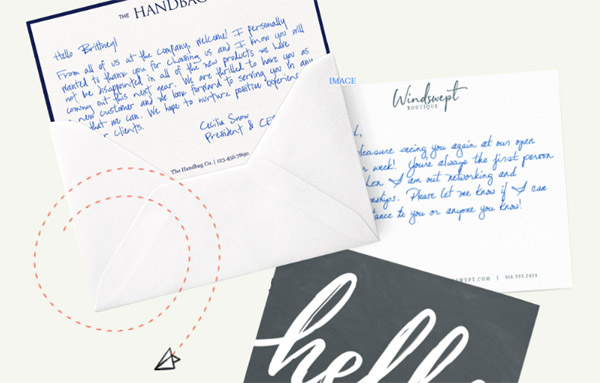 THE HANDBAG
Hello Brittney!
From all of us at the company, welcome! I personally
wanted to thank you for choosing us and I know you will
not be disappointed in all of the new products we have
coming out this next year. We are thrilled to have you as
new customer and we look forward to serving you in any
that we can. We hope to nurture positive
clients.
Cecilia Snow
President &
The Handbag Co. | 123-456-7890
IMAGE
Windswept
BOUTIQUE
seeing you again at our open
week! You're always the first person
I am out networking and
Please let me know if I can
to you or anyone you know!
hello